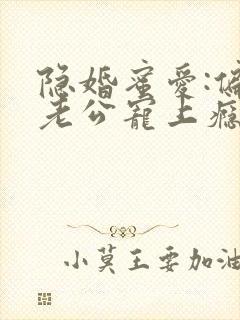 隐婚蜜爱:偏
老公寵上癮
小莫王要加油